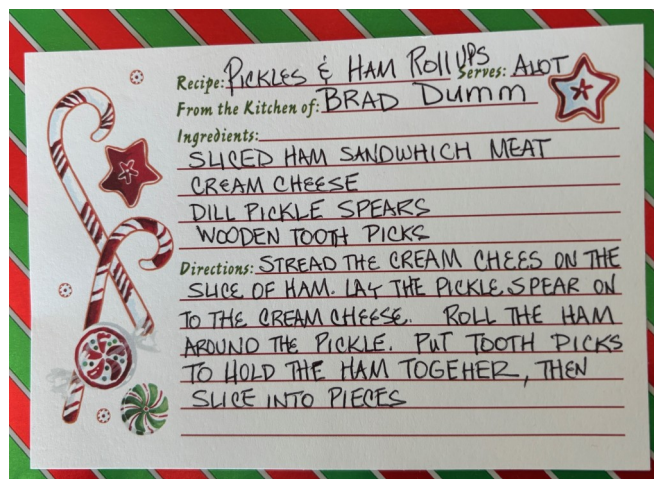 Recipe: PICKLES & HAM ROLLUPS Serves: ALOT
From the Kitchen of: BRAD DUMM
Ingredients:
SLICED HAM SANDWHICH MEAT
CREAM CHEESE
DILL PICKLE SPEARS
WOODEN TOOTH PICKS
Directions: STREAD THE CREAM CHEES ON THE
SLICE OF HAM. LAY THE PICKLE SPEAR ON
TO THE CREAM CHEESE. ROLL THE HAM
AROUND THE PICKLE. PUT TOOTH PICKS
TO HOLD THE HAM TOGEHER, THEN
SLICE INTO PIECES